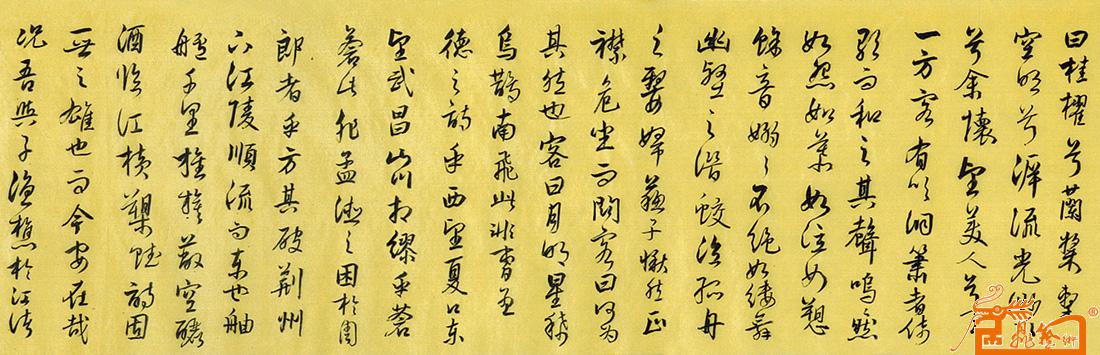 曰桂櫂兮蘭槳擊
空明兮泝流光渺渺
兮余懷望美人兮天
一方客有吹洞簫者倚
歌而和之其聲嗚嗚然
如怨如慕如泣如愬
餘音嫋嫋不絕如縷舞
幽壑之潛蛟泣孤舟
之嫠婦蘇子愀然正
襟危坐而問客曰何為
其然也客曰月明星稀
烏鵲南飛此非曹孟
德之詩乎西望夏口東
望武昌山川相繆乎蒼
蒼此非孟德之困於周
郎者乎方其破荊州
下江陵順流而東也舳
艫千里旌旗蔽空釃
酒臨江橫槊賦詩固
一世之雄也而今安在哉
況吾與子漁樵於江渚